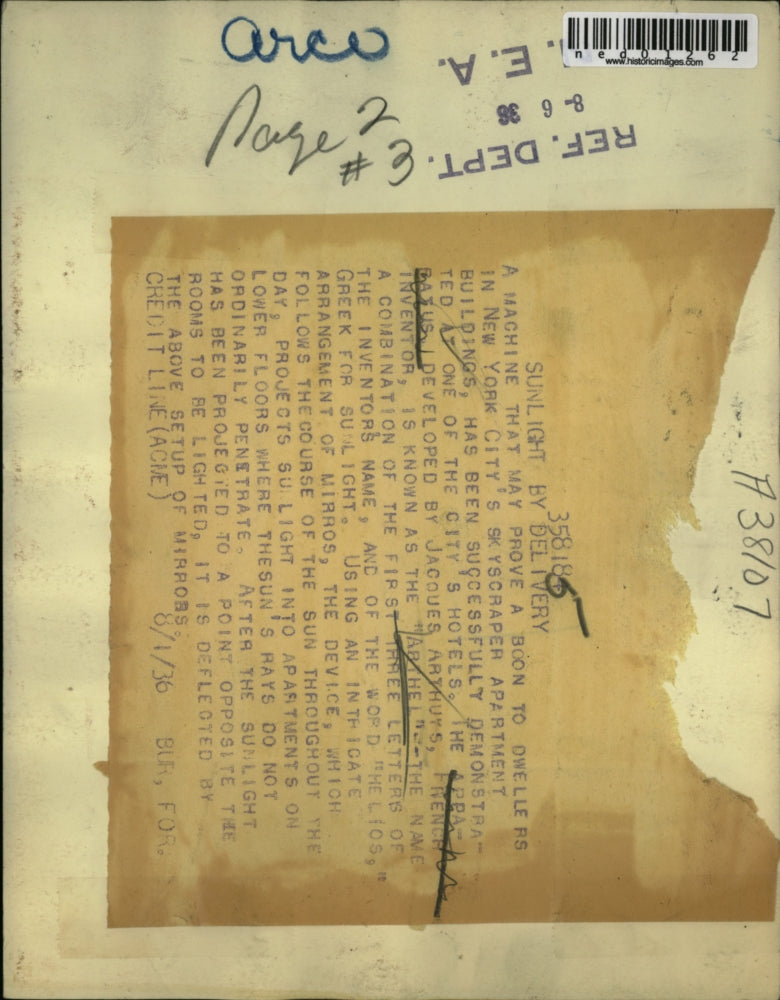 arco
Page 2
#3
N. E. A.
8-6 36
REF. DEPT.
ned01262
www.historicimages.com
A 38107
358185
SUNLIGHT BY DELIVERY
A MACHINE THAT MAY PROVE A BOON TO DWELLERS
IN NEW YORK CITY'S SKYSCRAPER APARTMENT
BUILDINGS, HAS BEEN SUCCESSFULLY DEMONSTRA-
TED AT ONE OF THE CITY'S HOTELS. THE APPA-
RATUS, DEVELOPED BY JACQUES ARTHUYS, FRENCH
INVENTOR, IS KNOWN AS THE "ARTHEL"--THE NAME
A COMBINATION OF THE FIRST THREE LETTERS OF
THE INVENTORS NAME, AND OF THE WORD "HELIOS,"
GREEK FOR SUNLIGHT. USING AN INTRICATE
ARRANGEMENT OF MIRROS, THE DEVICE, WHICH
FOLLOWS THECOURSE OF THE SUN THROUGHOUT THE
DAY, PROJECTS SUNLIGHT INTO APARTMENTS ON
LOWER FLOORS WHERE THESUN'S RAYS DO NOT
ORDINARILY PENETRATE. AFTER THE SUNLIGHT
HAS BEEN PROJECTED TO A POINT OPPOSITE THE
ROOMS TO BE LIGHTED, IT IS DEFLECTED BY
THE ABOVE SETUP OF MIRRORS.
CREDIT LINE (ACME) 8/1/36 BUR, FOR.